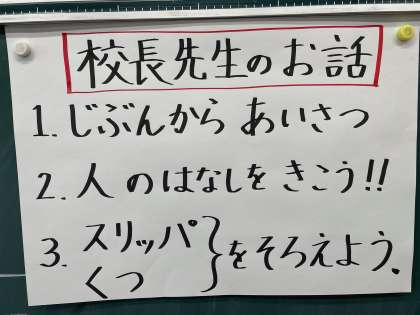 校長先生のお話
1. じぶんから あいさつ
2. 人 のはなしを きこう!!
3. スリッパ
くつ } をそろえよう.